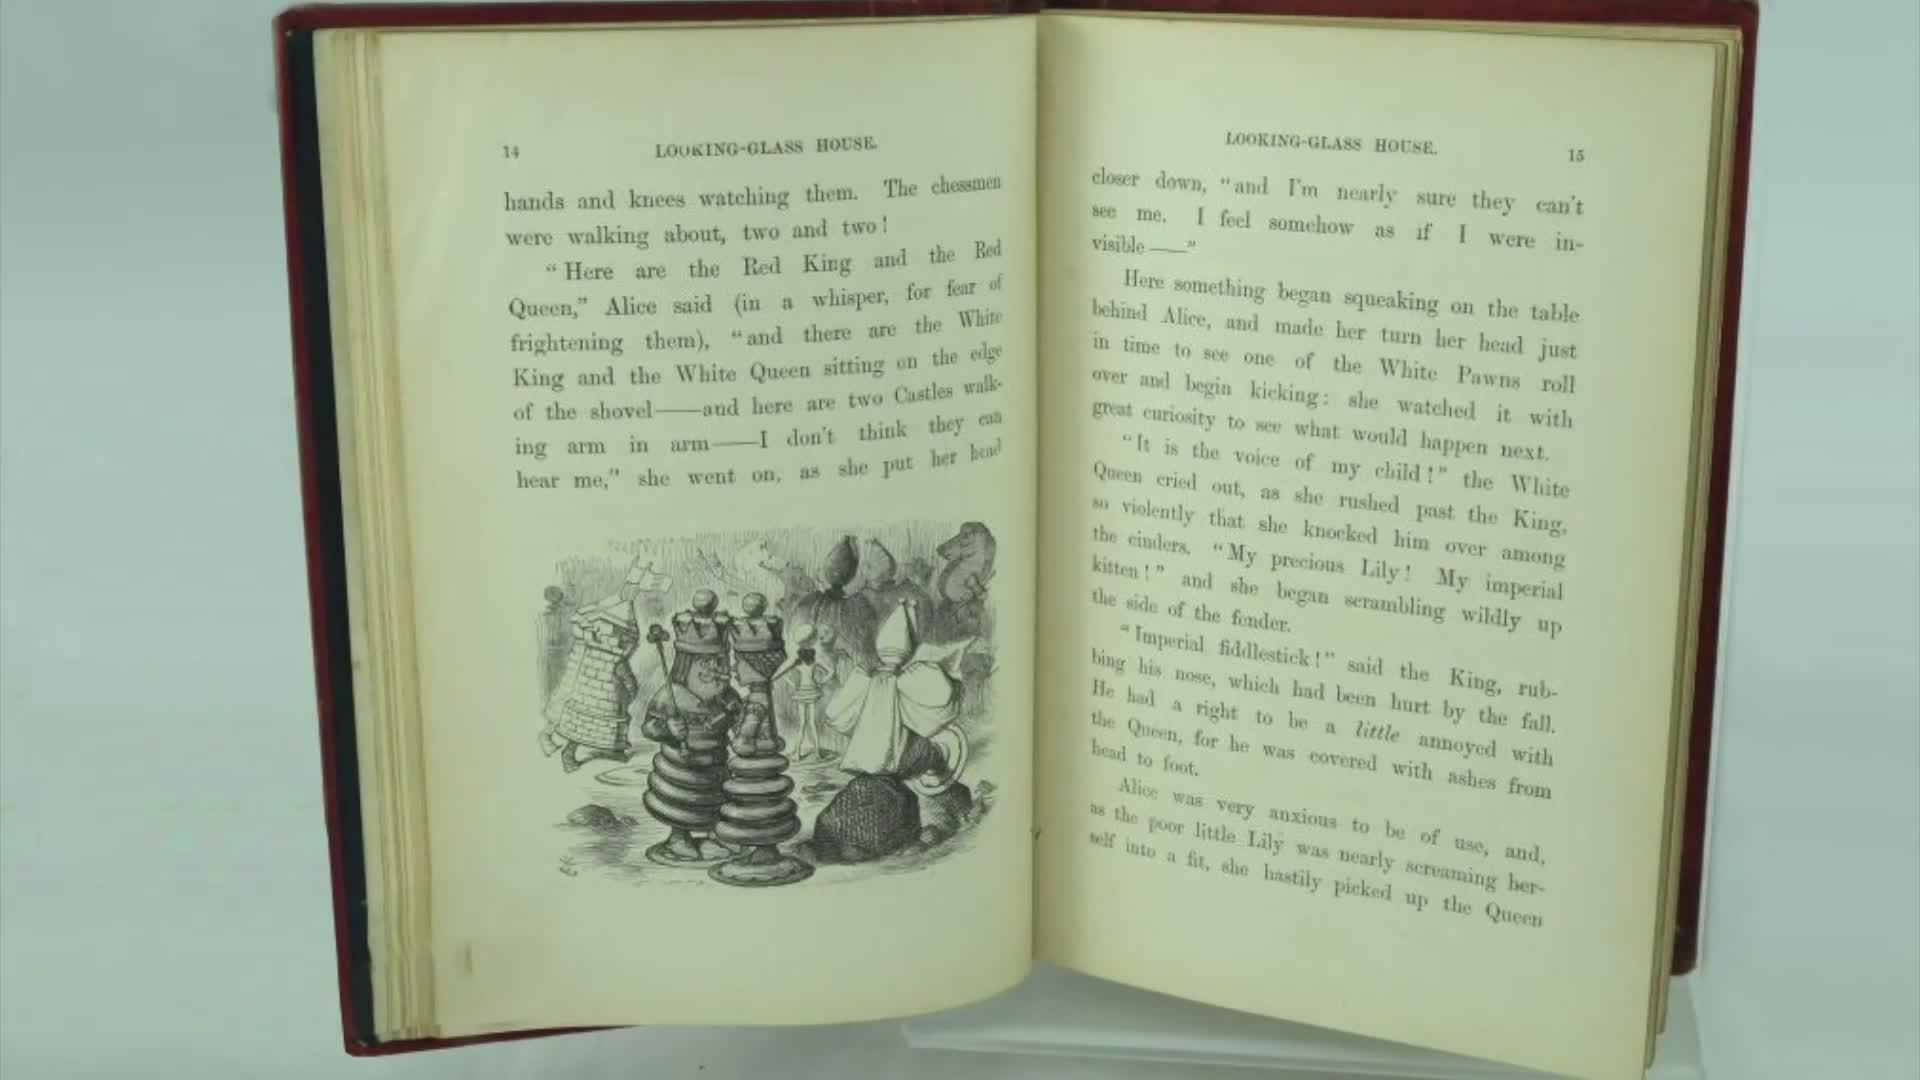 14 LOOKING-GLASS HOUSE.
hands and knees watching them. The chessmen
were walking about, two and two!
"Here are the Red King and the Red
Queen," Alice said (in a whisper, for fear of
frightening them), "and there are the White
King and the White Queen sitting on the edge
of the shovel——and here are two Castles walk-
ing arm in arm——I don't think they can
hear me," she went on, as she put her head
LOOKING-GLASS HOUSE. 15
closer down, "and I'm nearly sure they can't
see me. I feel somehow as if I were in-
visible——"
Here something began squeaking on the table
behind Alice, and made her turn her head just
in time to see one of the White Pawns roll
over and begin kicking: she watched it with
great curiosity to see what would happen next.
"It is the voice of my child!" the White
Queen cried out, as she rushed past the King,
so violently that she knocked him over among
the cinders. "My precious Lily! My imperial
kitten!" and she began scrambling wildly up
the side of the fender.
"Imperial fiddlestick!" said the King, rub-
bing his nose, which had been hurt by the fall.
He had a right to be a little annoyed with
the Queen, for he was covered with ashes from
head to foot.
Alice was very anxious to be of use, and,
as the poor little Lily was nearly screaming her-
self into a fit, she hastily picked up the Queen